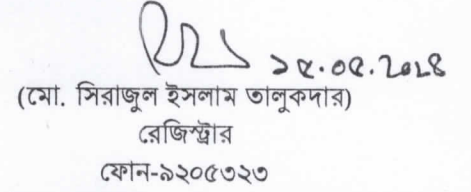 ১৫.০৫.২০২৪
(মো. সিরাজুল ইসলাম তালুকদার)
রেজিস্ট্রার
ফোন-৯২০৫৩২৩